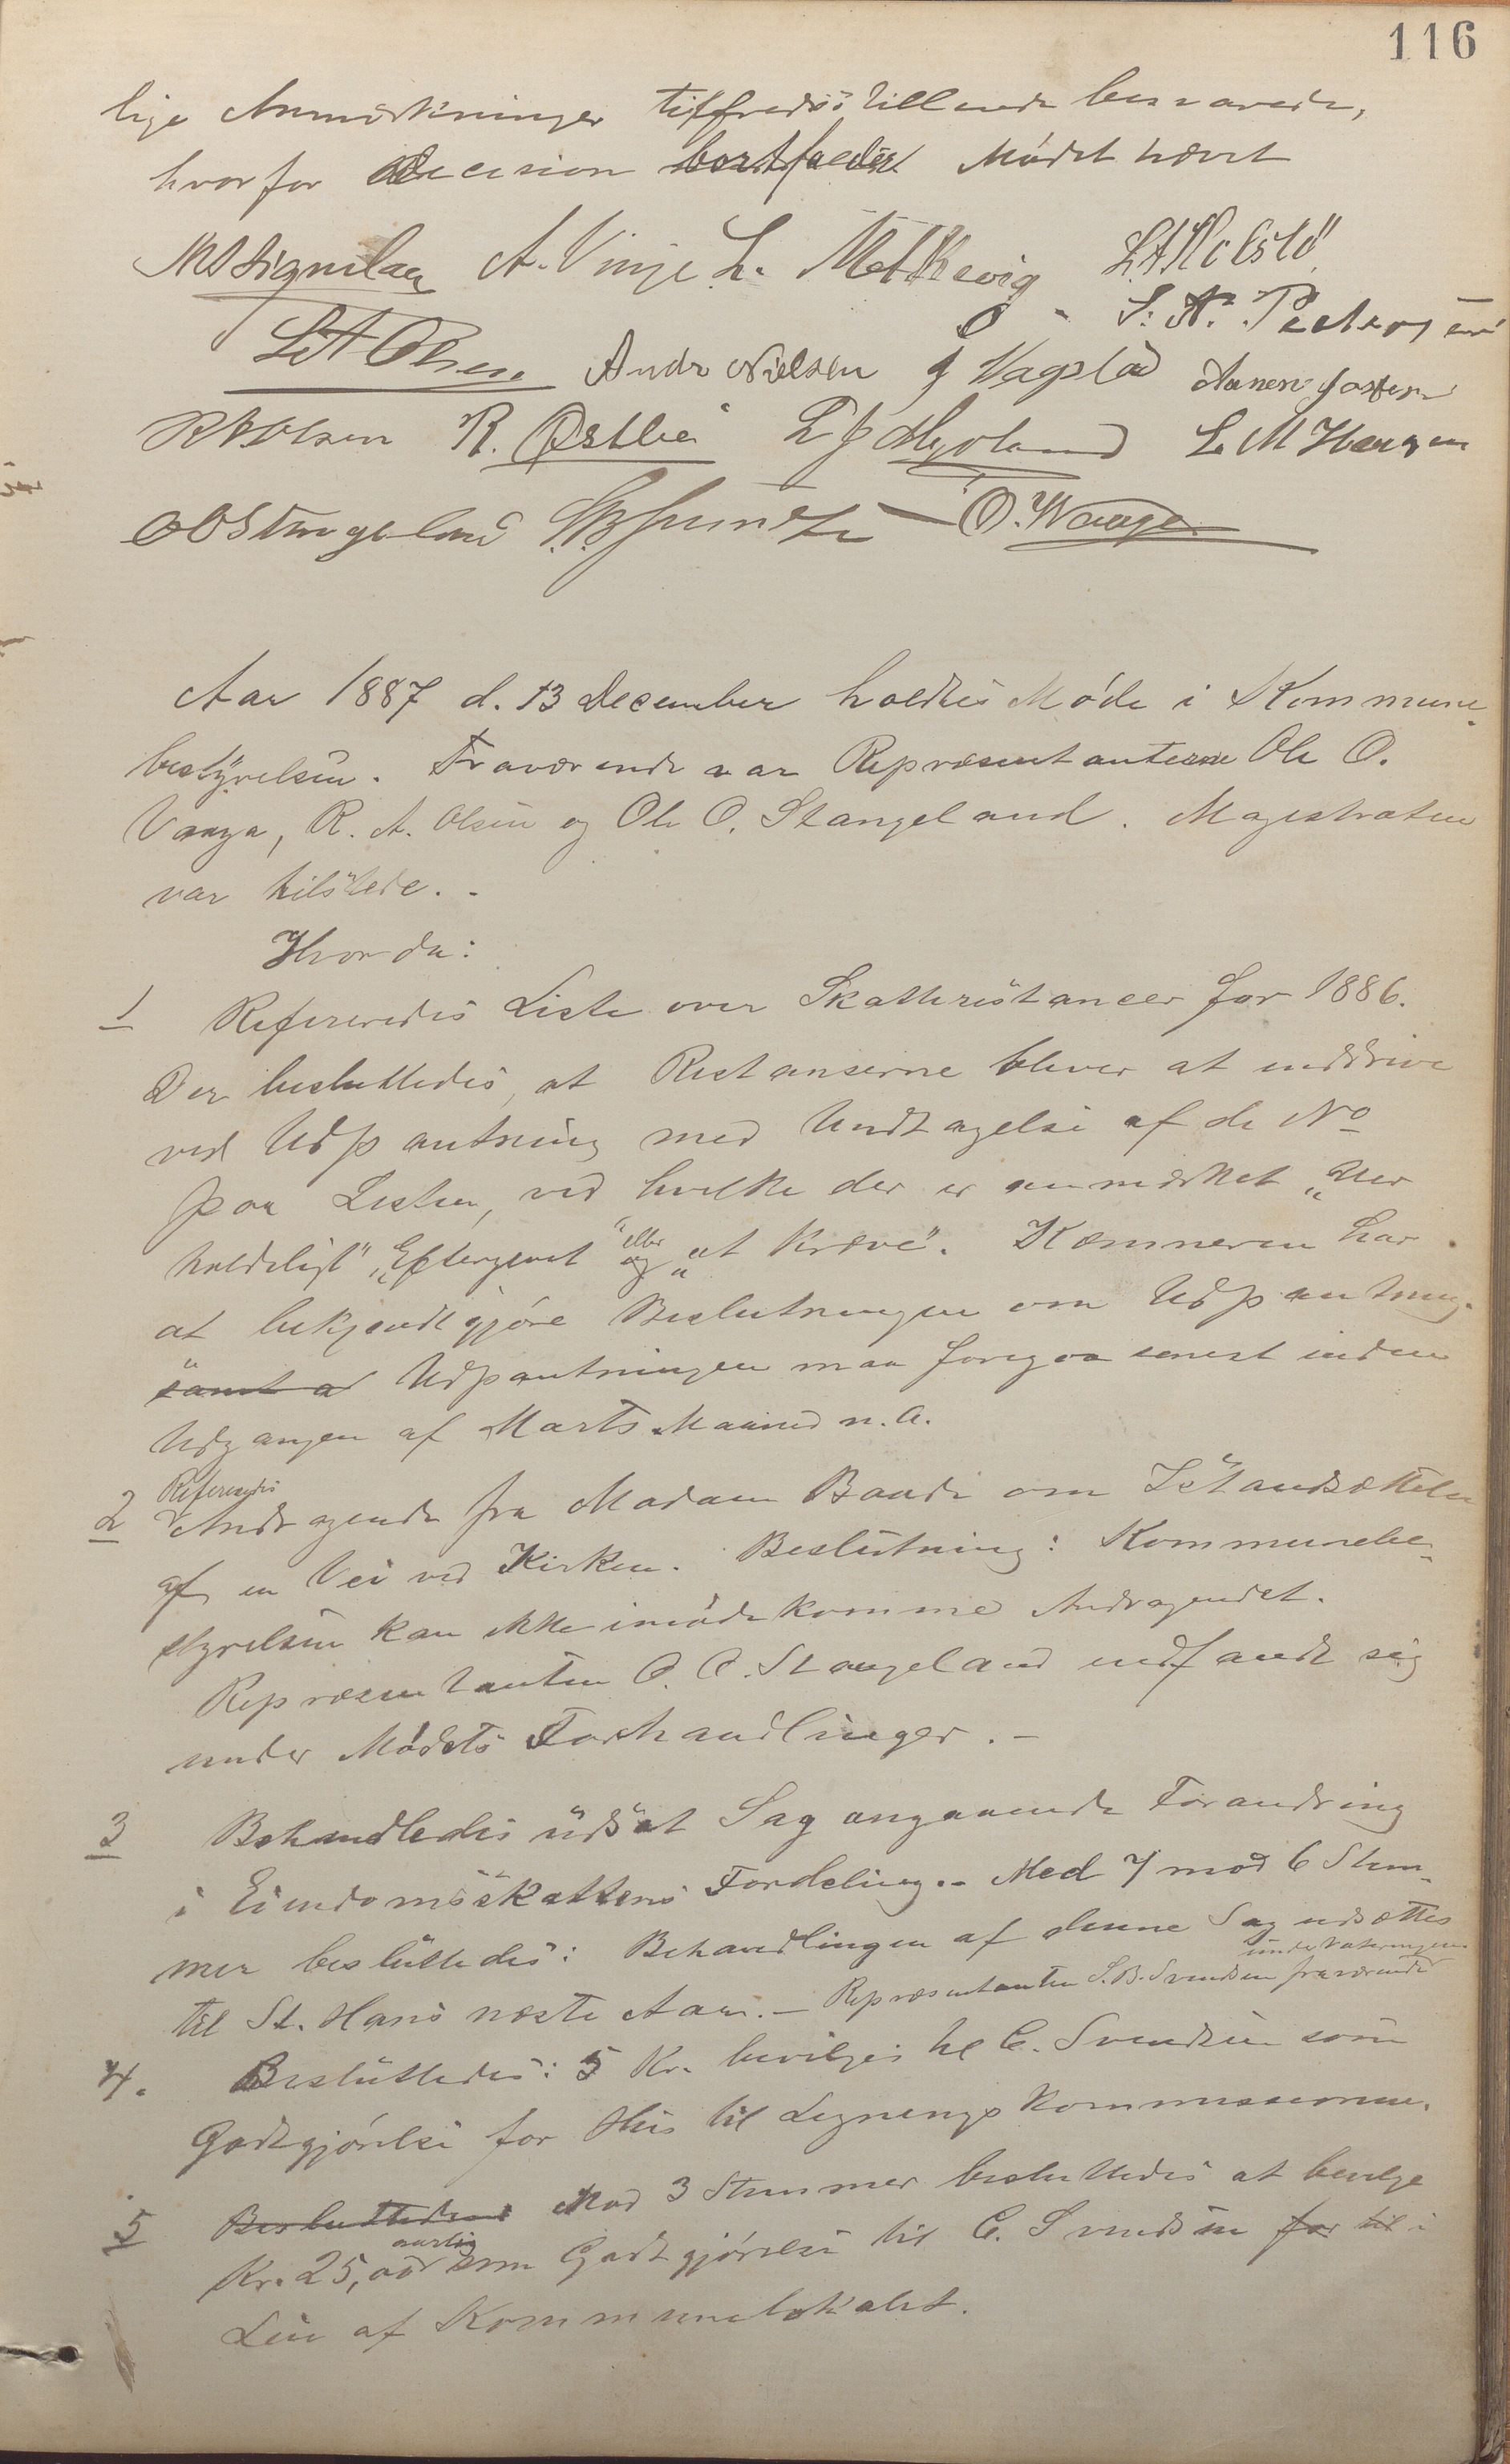 116
lige Anmærkninger tilfredsstillende besvarede,
hvorfor Decision bortfalder. Mødet hævet
A. Vinje L. Medhaug
S. A. Pedersen
L A Olsen Andr Nielsen J Vagslad
R A Olsen R. Østbø L M Hansen
O O Stangeland O. Waage
Aar 1887 d. 13 December holdtes Møde i Kommune-
bestyrelsen. Fraværende var Repræsentanterne Ole O.
Vaaga, R. A. Olsen og Ole O. Stangeland. Magistraten
var tilstede. -
Hvorda:
1 Refereredes Liste over Skatterestancer for 1886.
Der besluttedes, at Restanserne bliver at inddrive
ved Udpantning med Undtagelse af de No
paa Listen, ved hvilke der er anmærket „Uer
holdeligt", „Eftergivet" eller og „at kræve". Kæmneren har
at bekjendtgjøre Beslutningen om Udpantning.
samt at Udpantningen maa foregaa senest inden
Udgangen af Marts Maaned n. A.
Referertes
2 Andragende fra Madam Baade om Istandsættelse
af en Vei ved Kirken. Beslutning: Kommunebe-
styrelsen kan ikke imødekomme Andragendet.
Repræsentanten O. O. Stangeland indfandt sig
under Mødets Forhandlinger. -
3 Behandledes udsat Sag angaaende Forandring
i Eiendomsskattens Fordeling. - Med 7 mod 6 Stem-
mer besluttedes: Behandlingen af denne Sag udsættes
til St. Hans næste Aar. - Repræsentanten S. B. Svendsen fraværende
under Voteringen
4. Besluttedes: 5 Kr. bevilges til C. Svendsen som
Godtgjørelse for Hus til Ligningskommissionen.
5 Besluttedes Mod 3 Stemmer besluttedes at bevilge
Kr. 25,00 aarlig som Godtgjørelse til C. Svendsen for til i
Leie af Kommunelokalet.